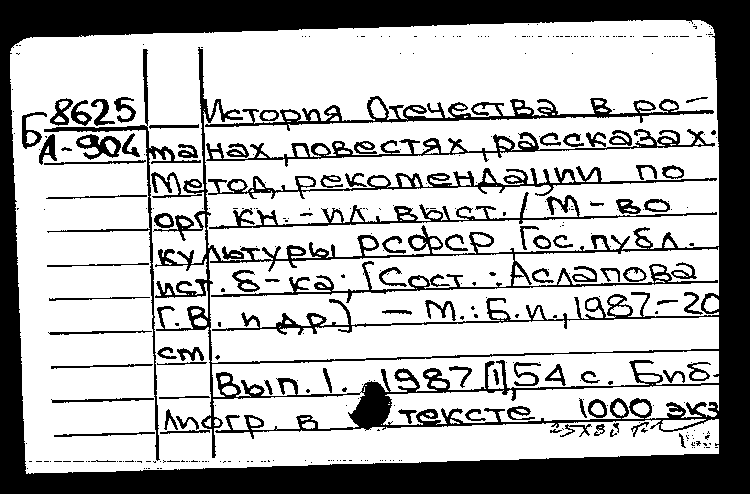 Б 8625 История Отечества в ро-
А-904 манах, повестях, рассказах:
Метод. рекомендации по
орг. кн.-ил. выст. / М-во
культуры РСФСР, Гос. публ.
ист. б-ка; [Сост.: Асланова
Г.В. и др.] — М.: Б.и., 1987.-20
см.
Вып. 1. 1987 [1], 54 с. Биб-
лиогр. в тексте. 1000 экз